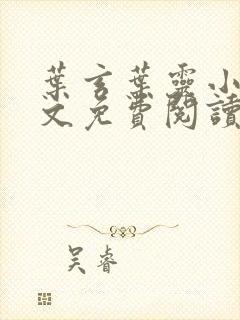 葉言葉靈小
文免費閱讀
吴睿